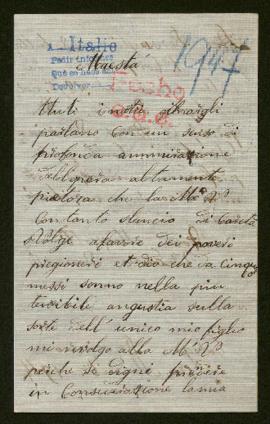 A. Italie
Pedir informes
1947
Maestà
Fecho
tutti i nostri
parlano con un senso di
profonda ammirazione
dell'opera altamente
pietosa che la M. V.
con tanto slancio di carità
svolge a favore dei poveri
prigionieri et io che da cinque
messi sonno nella più
terribile angustia sulla
sorte dell' unico mio figlio
mi rivolgo alla M. V.
perche si degni prendere
in considerazione la mia